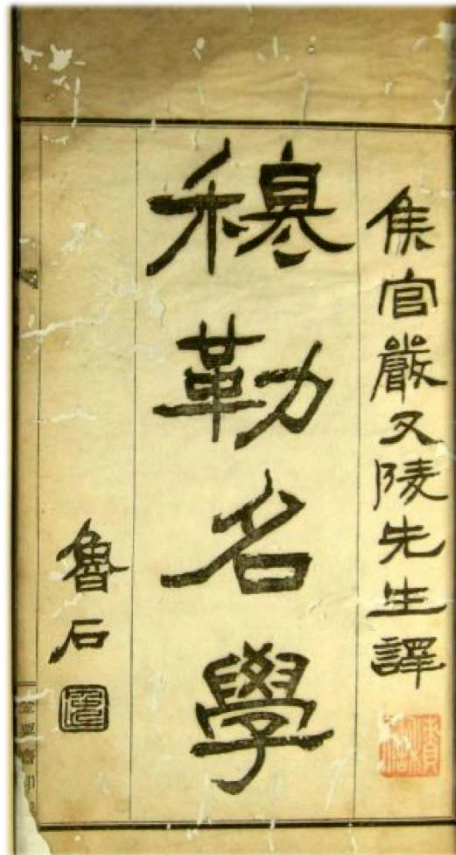 侯官嚴又陵先生譯
穆勒名學
魯石